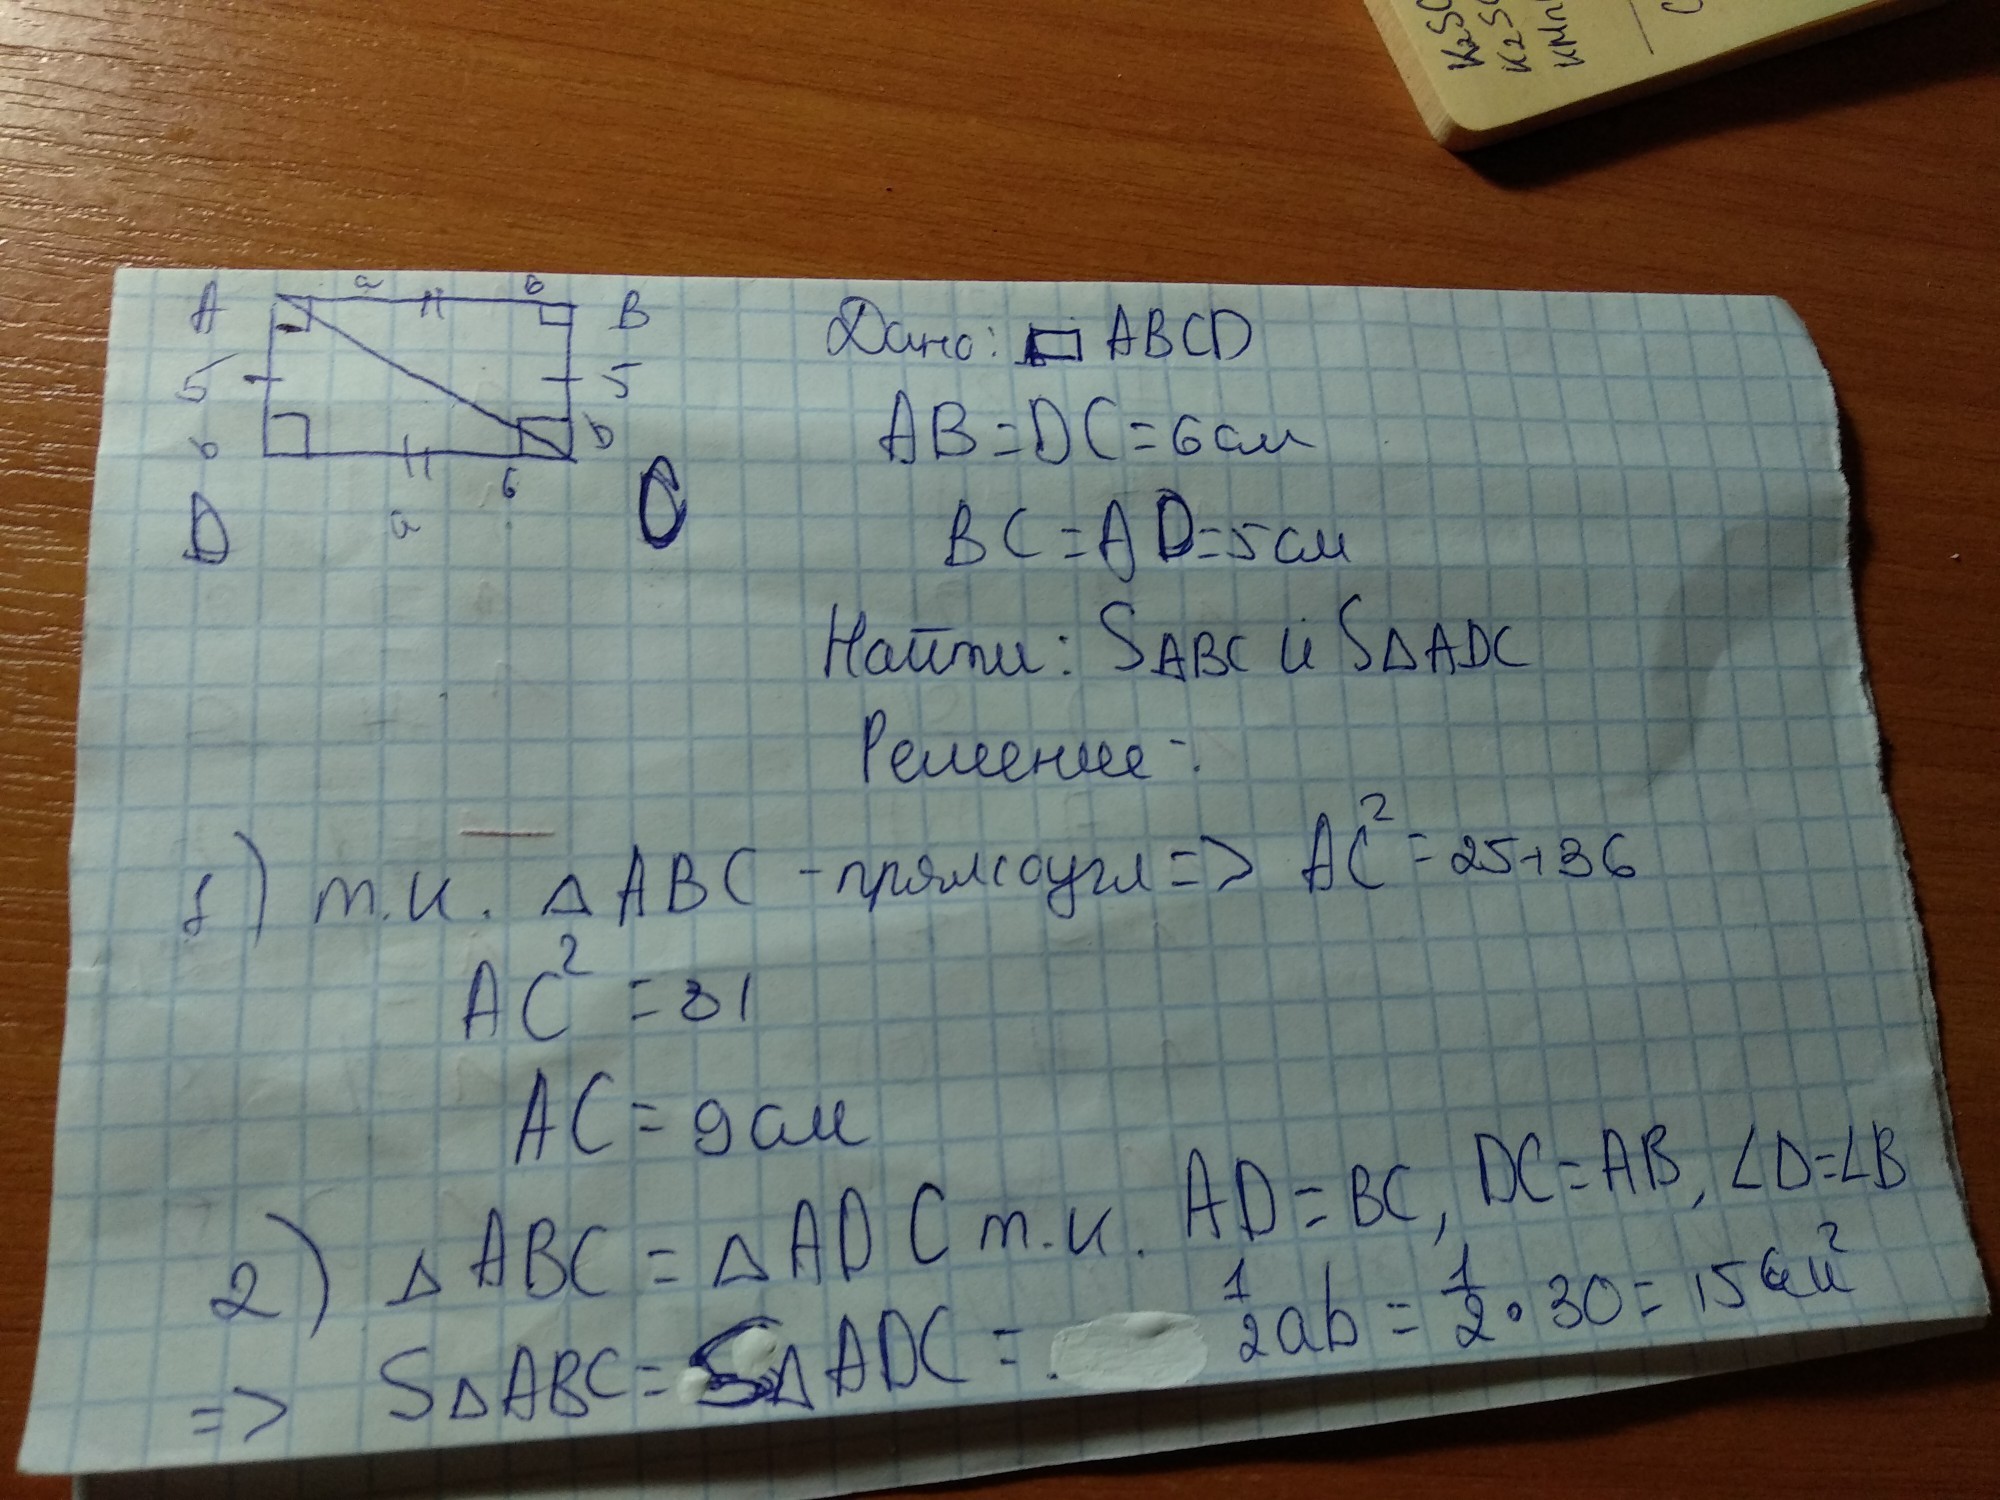 K₂SO
K₂SO
KMn
C
a в
A B
5 5
в b
6
D a C
Дано: ▭ ABCD
AB=DC=6см
BC=AD=5см
Найти: SABC и S△ADC
Решение:
1) т.к. △ABC - прямоугл => AC²=25+36
AC²=81
AC=9см
2) △ABC=△ADC т.к. AD=BC, DC=AB, ∠D=∠B
=> S△ABC=S△ADC= ½ab=½•30=15см²